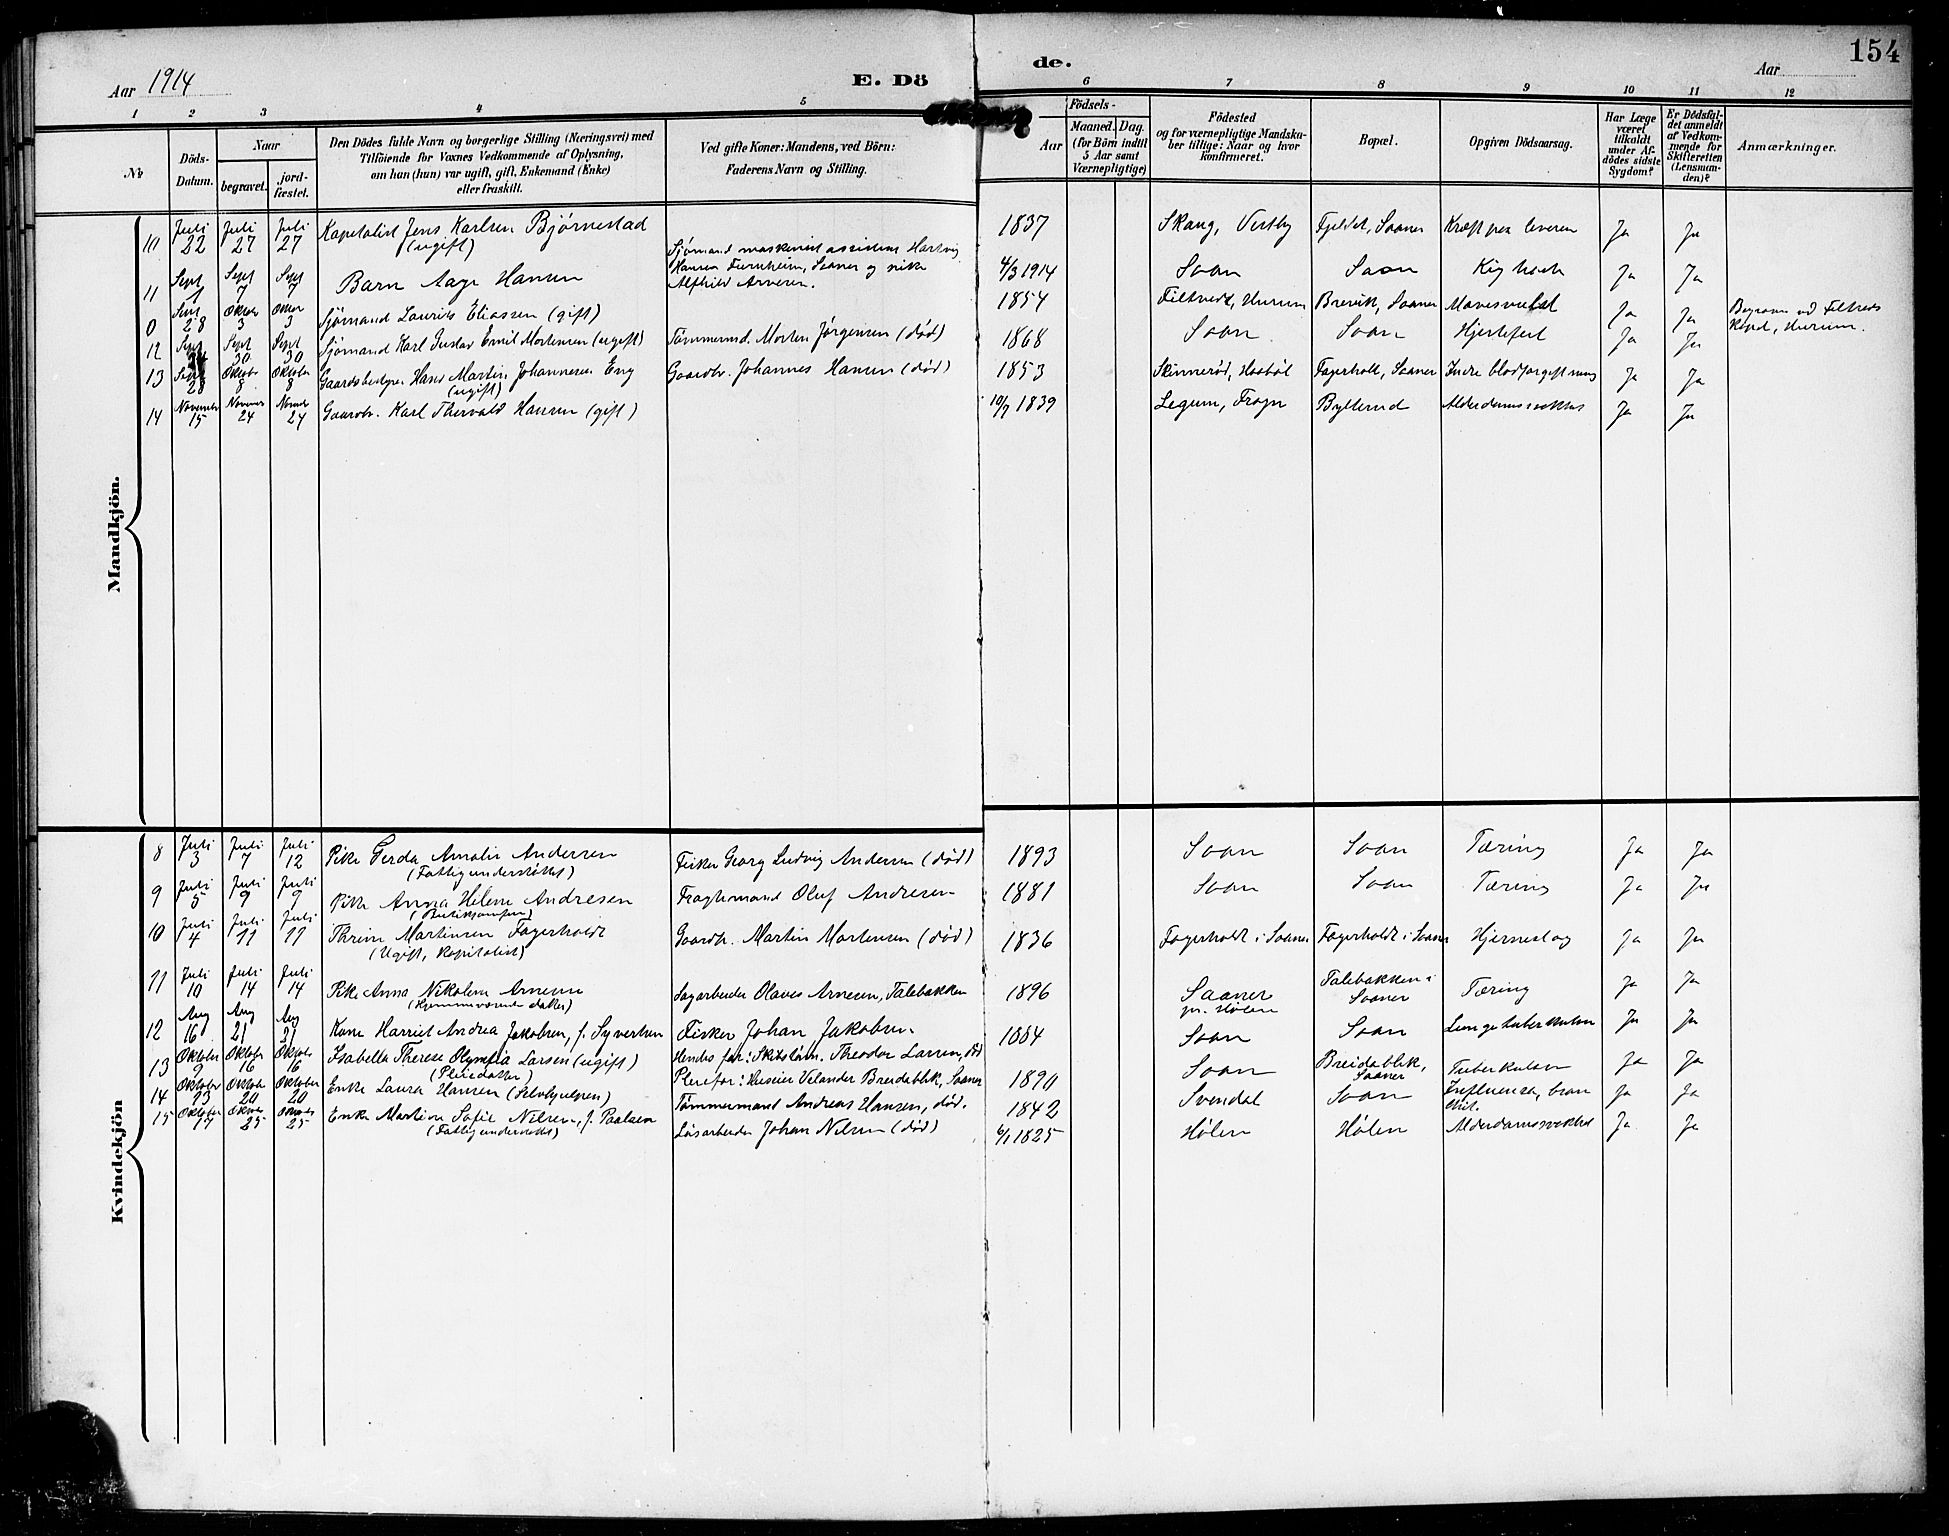 154
Aar 1914 E. Dö de. Aar
1 2 3 4 5 6 7 8 9 10 11 12
No
Döds-
Datum.
Naar
begravet.
jord-
fæstet.
Den Dödes fulde Navn og borgerlige Stilling (Næringsvei) med
Tilföiende for Voxnes Vedkommende af Oplysning,
om han (hun) var ugift, gift, Enkemand (Enke)
eller fraskilt.
Ved gifte Koner: Mandens, ved Börn:
Faderens Navn og Stilling.
Födsels-
Aar
Maaned. Dag.
(for Börn indtil
5 Aar samt
Værnepligtige)
Födested
og for værnepligtige Mandska-
ber tillige: Naar og hvor
konfirmeret.
Bopæl.
Opgiven Dödsaarsag.
Har Læge
været
tilkaldt
under Af-
dödes sidste
Sygdom?
Er Dödsfal-
det anmeldt
af Vedkom-
mende for
Skifteretten
(Lensman-
den)?
Anmærkninger.
Mandkjön.
10 Juli 22 Juli 27 Juli 27 Kapitalist Jens Karlsen Bjørnestad (ugift) 1837 Skaug, Vestby Fjeldet, Saaner Kræft paa leveren Ja Ja
11 Sept 1 Sept 7 Sept 7 Barn Aage Hansen Sjømand maskinist assistent Hartvig
Hansen Furuheim, Saaner og
Alfhild Arnesen. 4/3 1914 Soon Soon Kighoste Ja Ja
0 Sept 28 Oktober 3 Oktober 3 Sjømand Laurits Eliassen (gift) 1854 Filtvedt, Hurum Brevik, Saaner Ja Ja Begraven ved Filtvedt
Hurum.
12 Sept Sept 30 Sept 30 Sjømand Karl Gustav Emil Mortensen (ugift) Tømmermd. Morten Jørgensen (død) 1868 Soon Soon Hjertefeil Ja Ja
13 Sept 28 Oktober 8 Oktober 8 Gaardsbestyrer Hans Martin Johannesen Eng (ugift) Gaardbr. Johannes Hansen (død) 1853 Skinnerød, Haabøl Fagerholt, Saaner Indre blodforgiftning Ja Ja
14 November 15 November 24 November 24 Gaardbr. Karl Thorvald Hansen (gift) 10/7 1839 Legum, Frogn Byllerud Ja Ja
Kvindekjön
8 Juli 3 Juli 7 Juli 12 Pike Gerda Amalie Andersen
(Fattigunderstøttet) Fisker Georg Ludvig Andersen (død) 1893 Soon Soon Tæring Ja Ja
9 Juli 5 Juli 9 Juli 9 Pike Anna Helene Andresen Fragtemand Oluf Andresen 1881 Soon Soon Tæring Ja Ja
10 Juli 4 Juli 11 Juli 11 Thrine Martinsen Fagerholdt
(Ugift, kapitalist) Gaardb. Martin Mortensen (død) 1836 Fagerholdt i Saaner Fagerholdt i Saaner Hjerneslag Ja Ja
11 Juli 10 Juli 14 Juli 14 Pike Anna Nikoline Arnesen
(Hjemmeværende datter) Sagarbeider Olaves Arnesen, Talebakken 1896 Saaner
pr. Hølen Talebakken i
Saaner Tæring Ja Ja
12 Aug 16 Aug 21 Aug 21 Kone Harriet Andrea Jakobsen, f. Syvertsen Fisker Johan Jakobsen 1884 Soon Soon Lungetuberkulose Ja Ja
13 Oktober 9 Oktober 16 Oktober 16 Isabella Therese Olympia Larsen (ugift)
(Pleiedatter) Hendes far: Theodor Larsen, død
Pleiefar: Velander Breidablik, Saaner 1890 Soon Breidablik,
Saaner Tuberkulose Ja Ja
14 Oktober 13 Oktober 20 Oktober 20 Enke Laura Hansen Tømmermand Andreas Hansen, død. 1842 Svendal Soon Influensa, bron
chit. Ja Ja
15 Oktober 17 Oktober 25 Oktober 25 Enke Martine Sofie Nilsen, f. Paulsen
(Fattigunderstøttet) Løsarbeider Johan Nilsen (død) 6/1 1825 Hølen Hølen Alderdomssvakhet Ja Ja